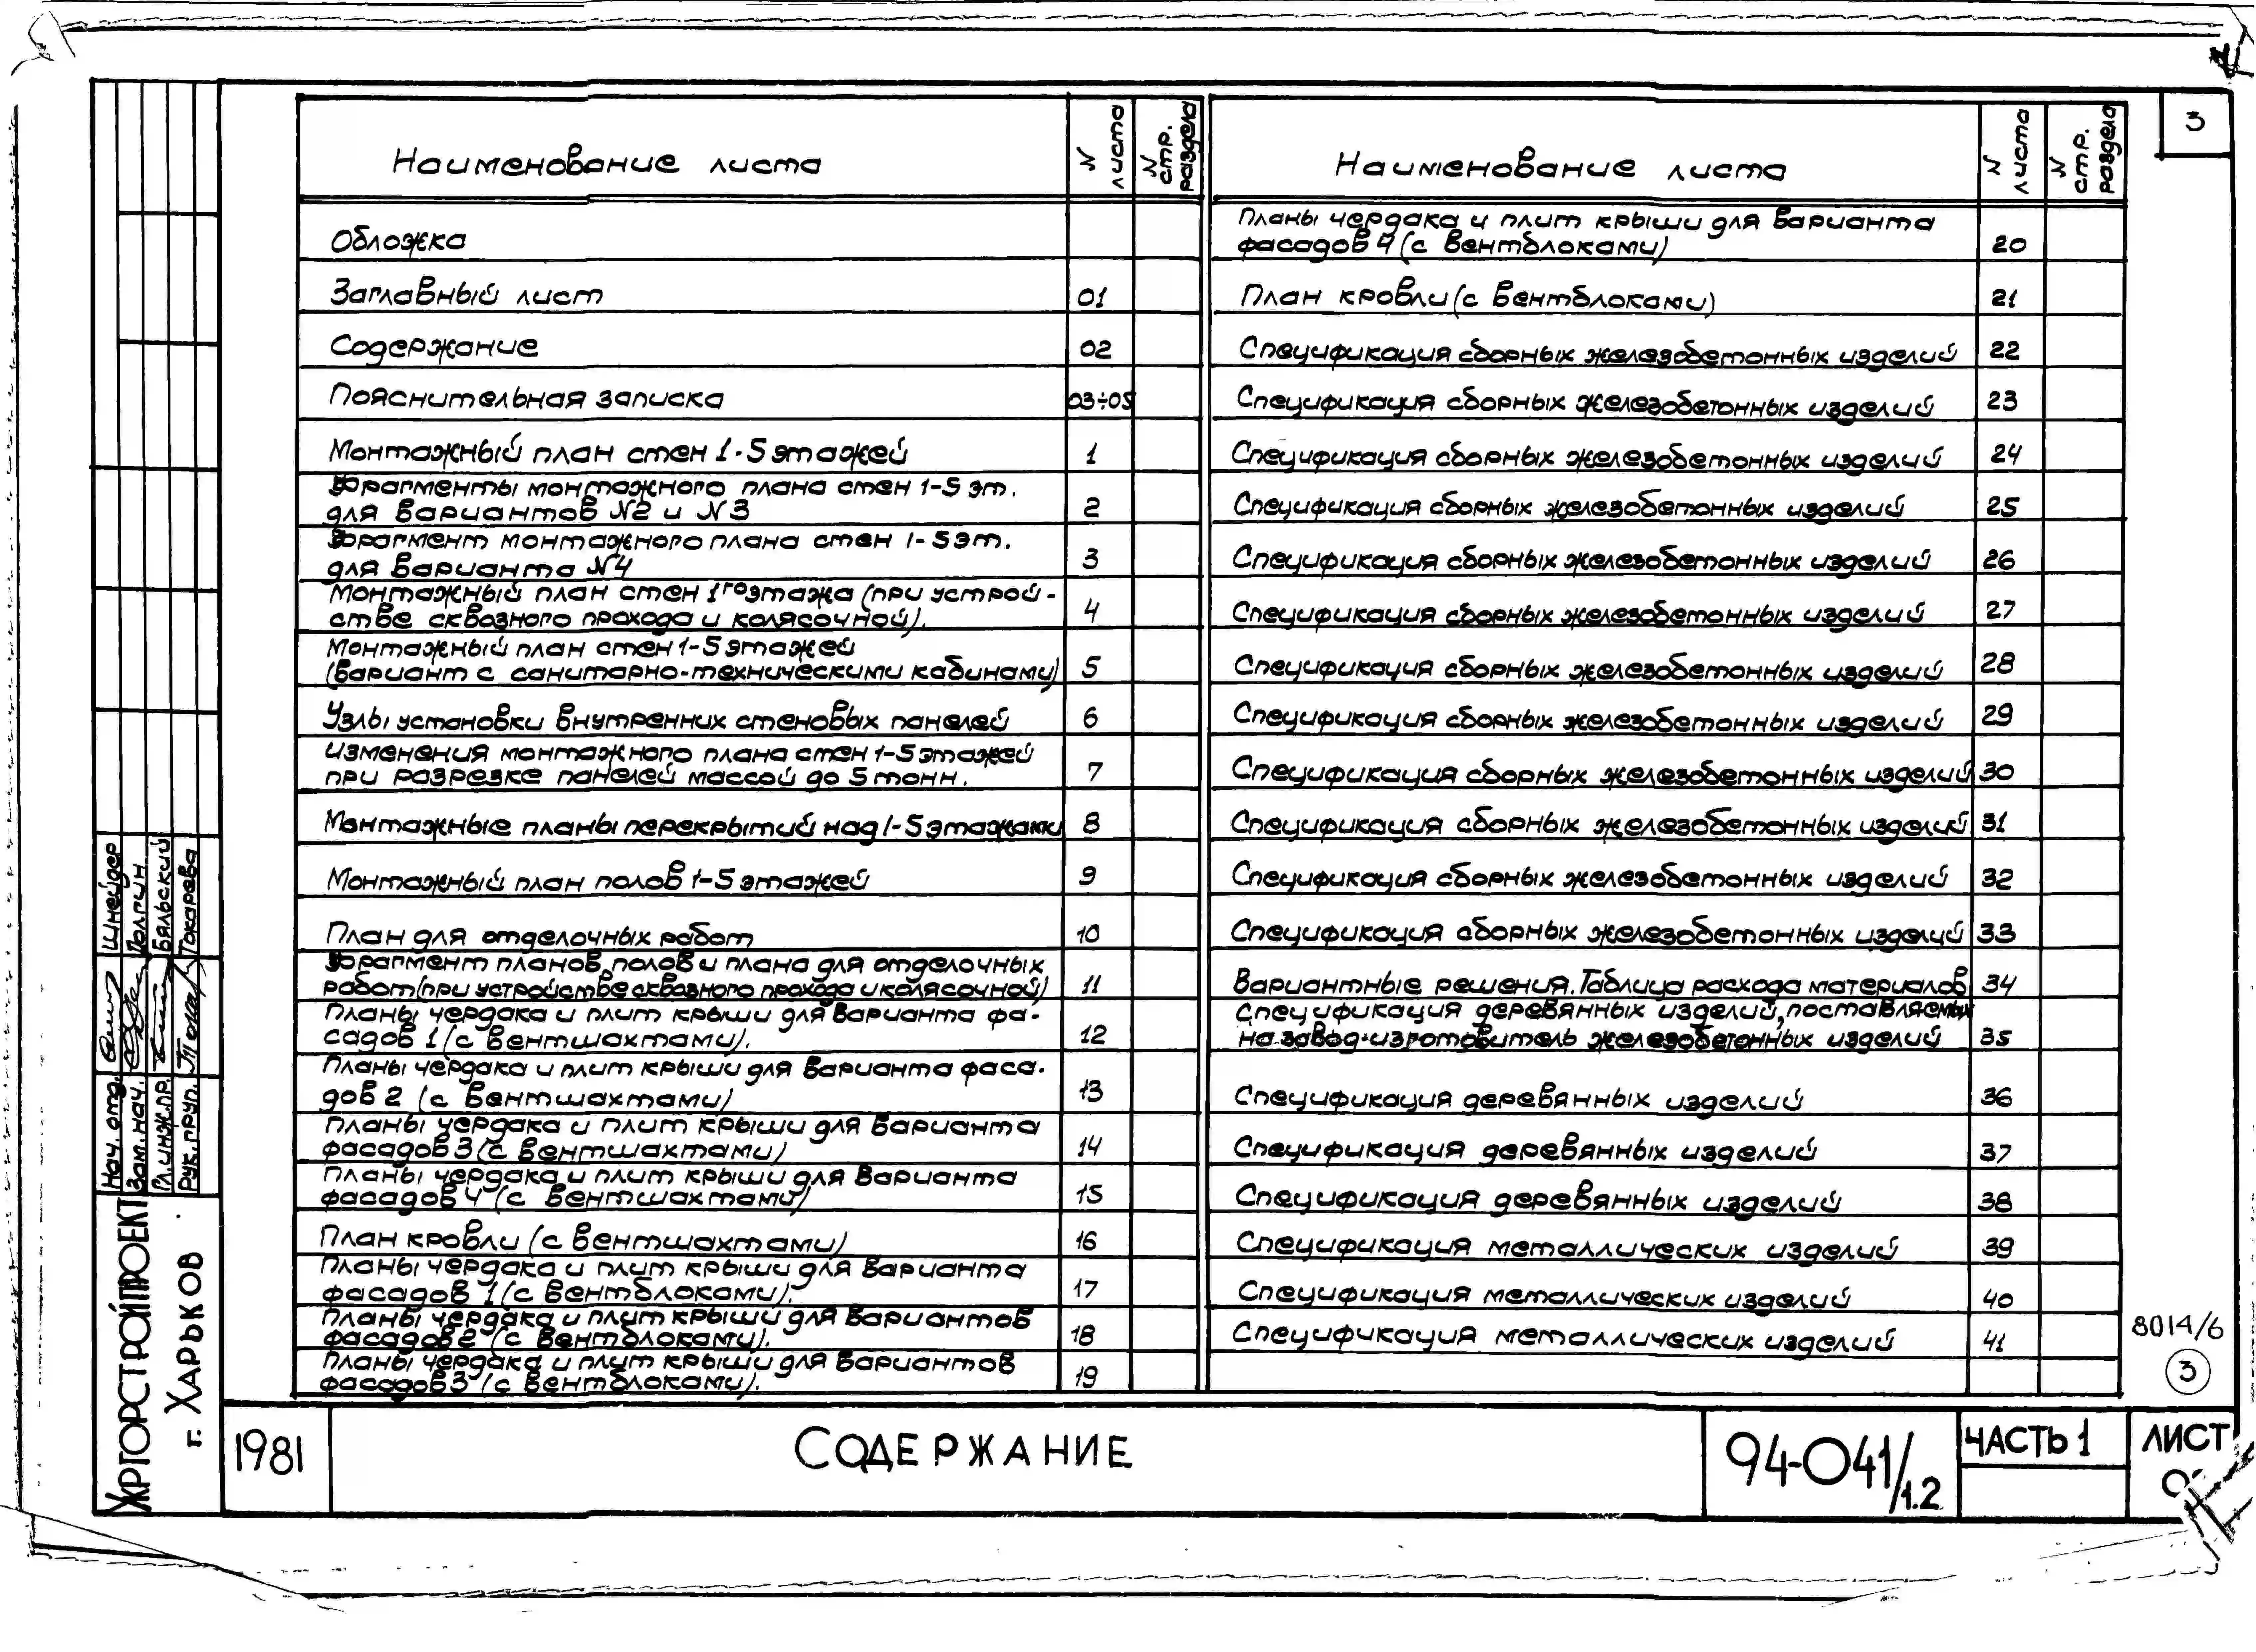 3
Наименование листа
N листа
N стр. раздела
Обложка
Заглавный лист 01
Содержание 02
Пояснительная записка 03÷05
Монтажный план стен 1-5 этажей 1
Фрагменты монтажного плана стен 1-5 эт.
для вариантов N2 и N3 2
Фрагмент монтажного плана стен 1-5 эт.
для варианта N4 3
Монтажный план стен 1го этажа (при устрой-
стве сквозного прохода и колясочной). 4
Монтажный план стен 1-5 этажей
(вариант с санитарно-техническими кабинами) 5
Узлы установки внутренних стеновых панелей 6
Изменения монтажного плана стен 1-5 этажей
при разрезке панелей массой до 5 тонн. 7
Монтажные планы перекрытий над 1-5 этажами 8
Монтажный план полов 1-5 этажей 9
План для отделочных работ 10
Фрагмент планов полов и плана для отделочных
работ (при устройстве сквозного прохода и колясочной) 11
Планы чердака и плит крыши для варианта фа-
садов 1 (с вентшахтами). 12
Планы чердака и плит крыши для варианта фаса-
дов 2 (с вентшахтами) 13
Планы чердака и плит крыши для варианта
фасадов 3 (с вентшахтами) 14
Планы чердака и плит крыши для варианта
фасадов 4 (с вентшахтами) 15
План кровли (с вентшахтами) 16
Планы чердака и плит крыши для варианта
фасадов 1 (с вентблоками). 17
Планы чердака и плит крыши для вариантов
фасадов 2 (с вентблоками). 18
Планы чердака и плит крыши для вариантов
фасадов 3 (с вентблоками). 19
Наименование листа
N листа
N стр. раздела
Планы чердака и плит крыши для варианта
фасадов 4 (с вентблоками) 20
План кровли (с вентблоками) 21
Спецификация сборных железобетонных изделий 22
Спецификация сборных железобетонных изделий 23
Спецификация сборных железобетонных изделий 24
Спецификация сборных железобетонных изделий 25
Спецификация сборных железобетонных изделий 26
Спецификация сборных железобетонных изделий 27
Спецификация сборных железобетонных изделий 28
Спецификация сборных железобетонных изделий 29
Спецификация сборных железобетонных изделий 30
Спецификация сборных железобетонных изделий 31
Спецификация сборных железобетонных изделий 32
Спецификация сборных железобетонных изделий 33
Вариантные решения. Таблица расхода материалов 34
Спецификация деревянных изделий, поставляемых
на завод-изготовитель железобетонных изделий 35
Спецификация деревянных изделий 36
Спецификация деревянных изделий 37
Спецификация деревянных изделий 38
Спецификация металлических изделий 39
Спецификация металлических изделий 40
Спецификация металлических изделий 41
8014/6
3
Нач. отд. Шнейдер
Зам. нач. Долгин
Гл. инж. пр. Бяльский
Рук. груп. Токарева
ХАРГОРСТРОЙПРОЕКТ
г. ХАРЬКОВ
1981
СОДЕРЖАНИЕ
94-041/1.2
ЧАСТЬ 1
ЛИСТ